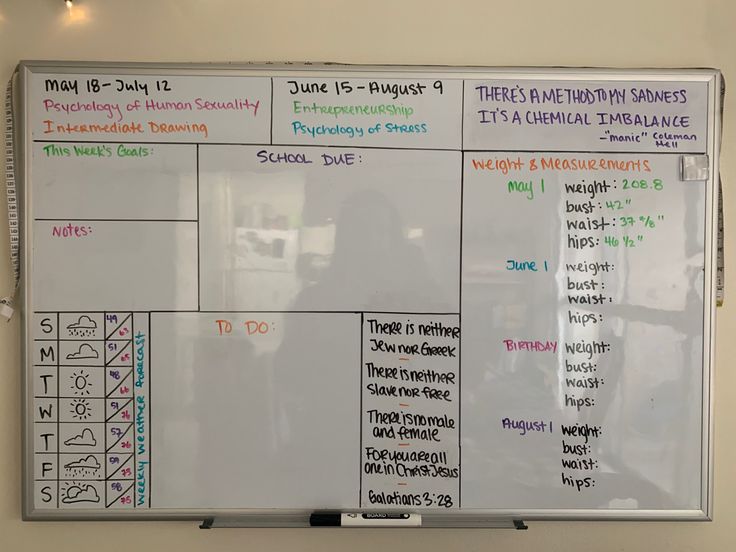 May 18-July 12
Psychology of Human Sexuality
Intermediate Drawing
June 15-August 9
Entrepreneurship
Psychology of Stress
THERE'S A METHOD TO MY SADNESS
IT'S A CHEMICAL IMBALANCE
-"manic" Coleman
Hell
This Week's Goals:
Notes:
SCHOOL DUE:
Weight & Measurements
May 1
weight: 208.8
bust: 42"
waist: 37
hips: 46 1/2"
June 1
weight:
bust:
waist:
hips:
BIRTHDAY
weight:
bust:
waist:
hips:
August 1
weight:
bust:
waist:
hips:
S 49
M 51
T 48
W 51
T 57
F 59 73
S 58 75
Weekly Weather Forecast
TO DO:
There is neither
Jew nor Greek
There is neither
slave nor free
There is no male
and female
For you are all
one in Christ Jesus
Galatians 3:28
BOARD